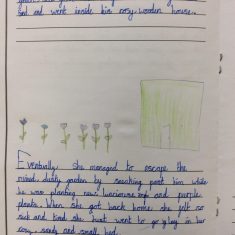 sad and went inside his cosy wooden house.
Eventually she managed to escape the
ruined, dusty garden by
past him while
he was planting new
and purple
plants. When she got back home she felt so
sick and
she
went to go
in her
cosy, sandy and small bed.